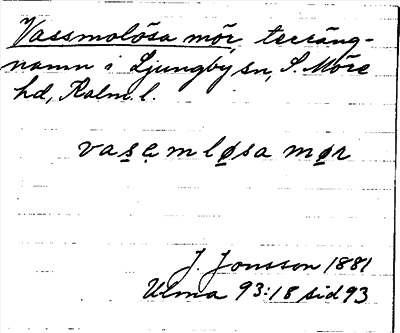 Vassmolösa mör, terräng-
namn i Ljungby sn, S. Möre
hd, Kalm. l.
vas̲e̲mlø̲sa mø̲r
J. Jonsson 1881
Ulma 93:18 sid 93